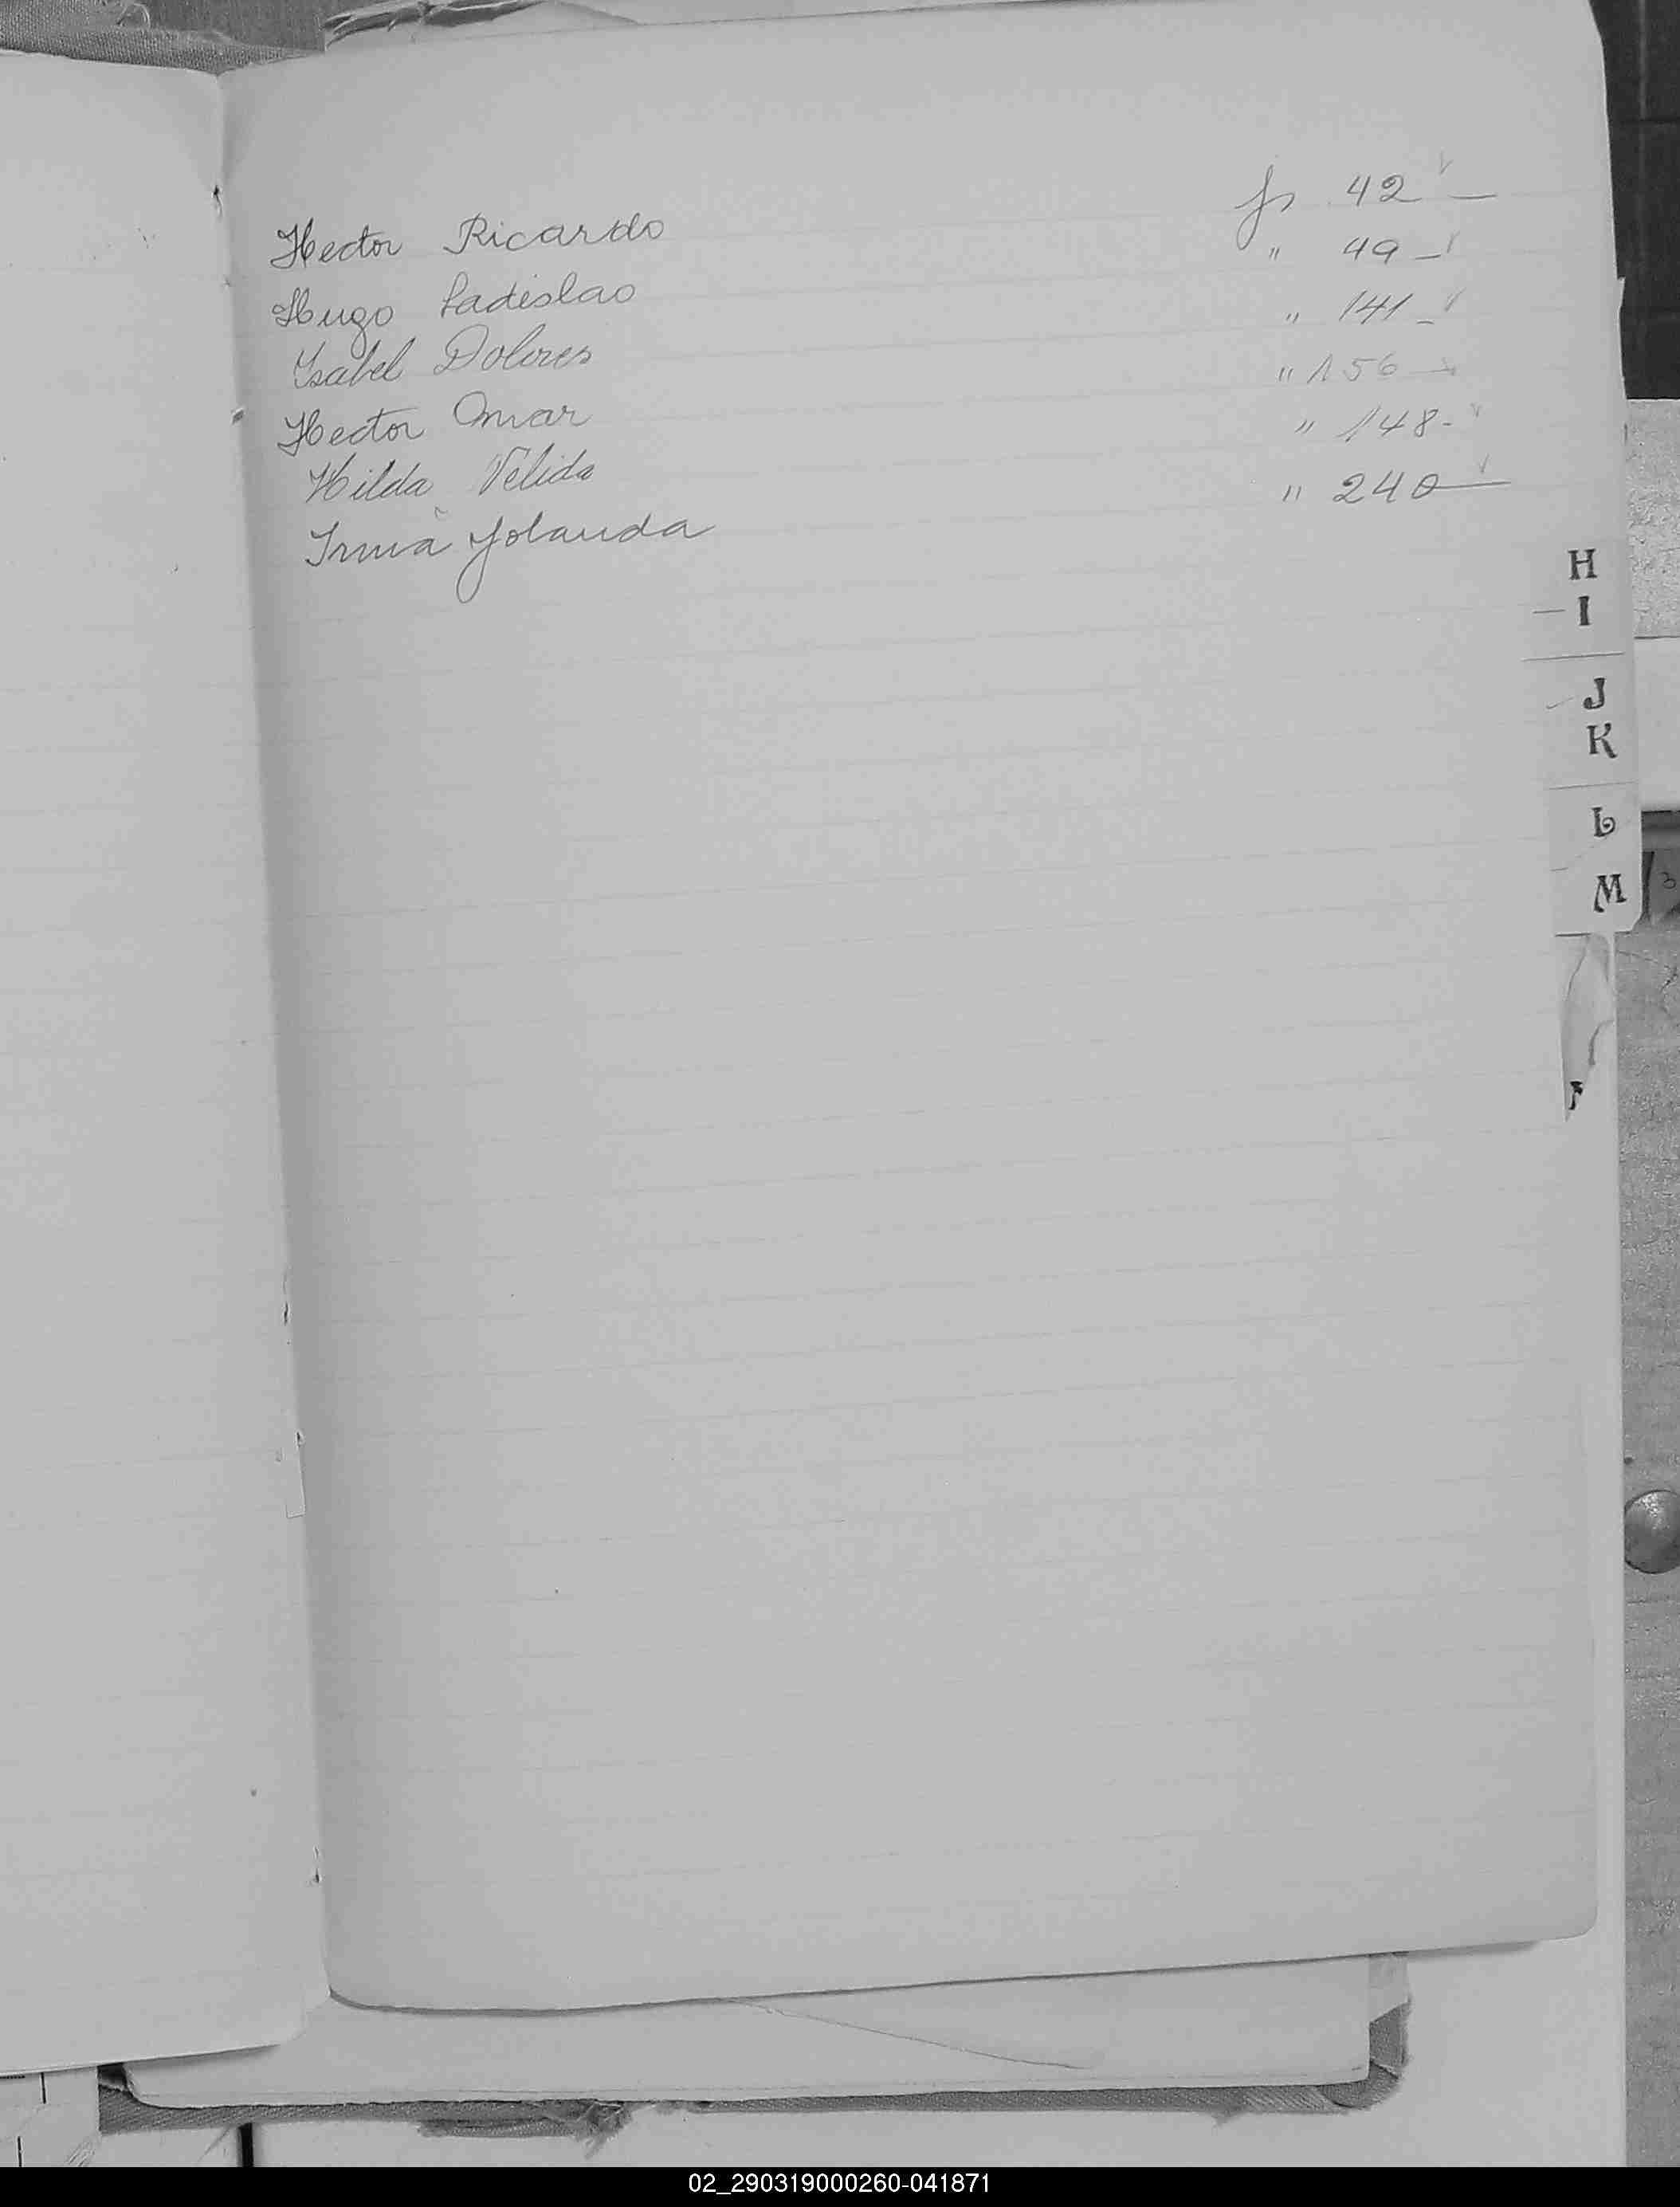 Hector Ricardo fs 42 —
Hugo Ladislao " 49 —
Isabel Dolores " 141 —
Hector Omar " 156 —
Hilda Velida " 148 -
Irma Yolanda " 240 —
H
I
J
K
L
M
3
02_290319000260-041871